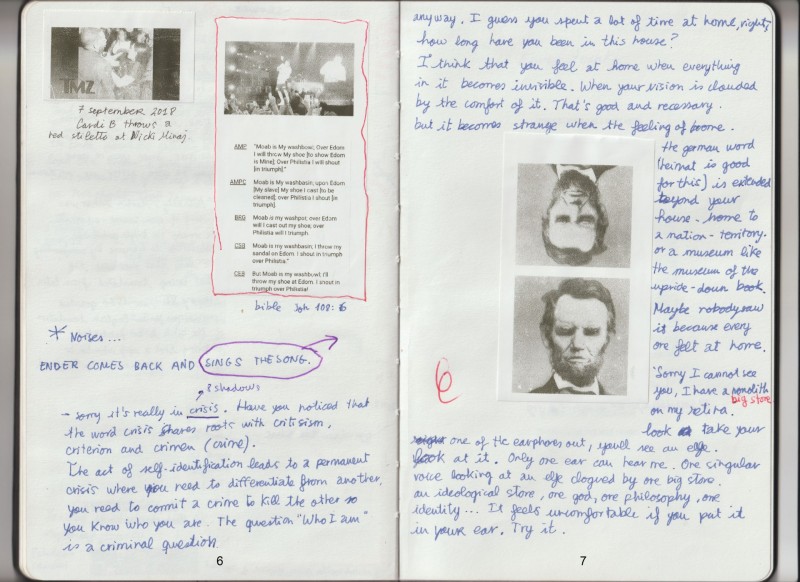 TMZ
7 september 2018
Cardi B throws a
red stiletto at Nicki Minaj.
AMP "Moab is My washbowl; Over Edom
I will throw My shoe [to show Edom
is Mine]; Over Philistia I will shout
[in triumph]."
AMPC Moab is My washbasin; upon Edom
[My slave] My shoe I cast [to be
cleaned]; over Philistia I shout [in
triumph].
BRG Moab is my washpot; over Edom
will I cast out my shoe; over
Philistia will I triumph.
CSB Moab is my washbasin; I throw my
sandal on Edom. I shout in triumph
over Philistia."
CEB But Moab is my washbowl; I'll
throw my shoe at Edom. I shout in
triumph over Philistia!
bible 108:
* Noises...
ENDER COMES BACK AND SINGS THE SONG.
shadows
- sorry it's really in crisis. Have you noticed that
the word crisis shares roots with critisism,
criterion and crimen (crime).
The act of self-identification leads to a permanent
crisis where you need to differentiate from another,
you need to commit a crime to kill the other so
you know who you are. The question "Who I am"
is a criminal question
6
anyway. I guess you spent a lot of time at home, right,
how long have you been in this house?
I think that you feel at home when everything
in it becomes invisible. When your vision is clouded
by the comfort of it. That's good and necessary.
but it becomes strange when the feeling of
He german word
Heimat is good
for this] is extended
beyond your
house - home to
a nation - territory.
or a museum like
the museum of the
upside-down book.
Maybe nobody saw
it because every
one felt at home.
6
'Sorry I cannot see
you, I have a monolith
big stone
on my retina.
look take your
one of the earphones out, you'll see an
look at it. Only one ear can hear me. One singular
voice looking at an clogued by one big store.
an ideological store, one god, one philosophy, one
identity... It feels uncomfortable if you put it
in your ear. Try it.
7